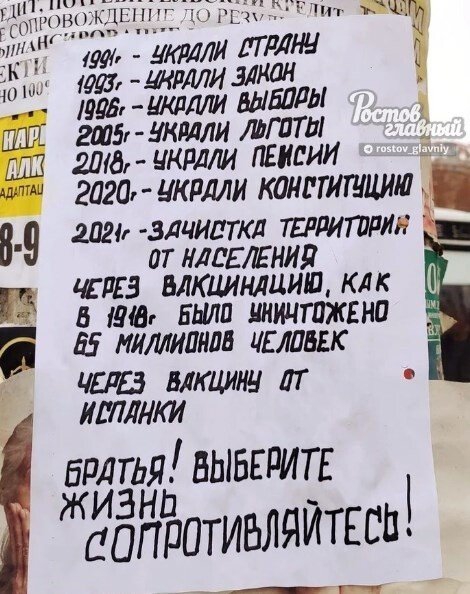 ЕДИТ, ПОТРЕБИТЕЛЬСКИЙ КРЕДИТ
СОПРОВОЖДЕНИЕ ДО
НО 100%
НАР
АЛК
АДАПТАЦ
8-9
1991г - УКРАЛИ СТРАНУ
1993г - УКРАЛИ ЗАКОН
1996г - УКРАЛИ ВЫБОРЫ
2005г - УКРАЛИ ЛЬГОТЫ
2018г - УКРАЛИ ПЕНСИИ
2020г - УКРАЛИ КОНСТИТУЦИЮ
2021г - ЗАЧИСТКА ТЕРРИТОРИИ
ОТ НАСЕЛЕНИЯ
ЧЕРЕЗ ВАКЦИНАЦИЮ, КАК
В 1918г БЫЛО УНИЧТОЖЕНО
65 МИЛЛИОНОВ ЧЕЛОВЕК
ЧЕРЕЗ ВАКЦИНУ ОТ
ИСПАНКИ
БРАТЬЯ! ВЫБЕРИТЕ
ЖИЗНЬ
СОПРОТИВЛЯЙТЕСЬ!
Ростов
главный
rostov_glavniy